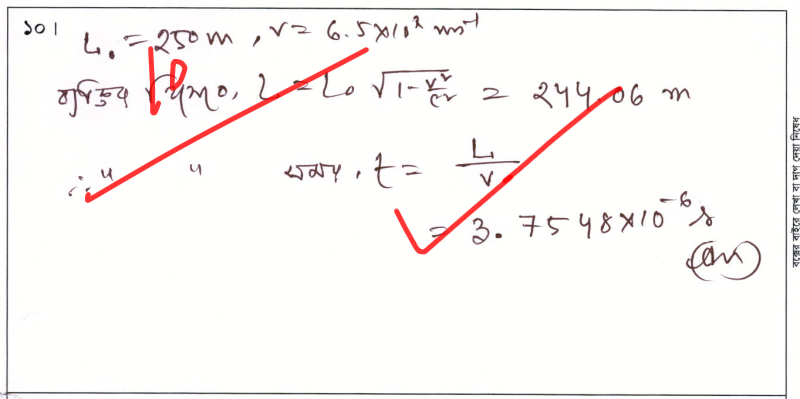 ১০। L₀ = 250 m, v = 6.5×10⁷ ms⁻¹
L = L₀ √(1 - v²/c²) = 244.06 m
∴ " " সময়, t = L/v
= 3.7548×10⁻⁶ s
(Ans)
বক্সের বাইরে লেখা বা দাগ দেয়া নিষেধ